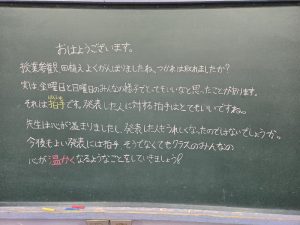 おはようございます。
授業参観、田植えよくがんばりましたね。つかれは取れましたか?
実は金曜日と日曜日のみんなの様子でとてもいいなと思ったことがあります。
それは拍手です。発表した人に対する拍手はとてもいいですね。
先生は心が温まりましたし、発表した人もうれしくなったのではないでしょうか。
今後もよい発表には拍手、そうでなくてもクラスのみんなの
心が温かくなるようなことをしていきましょう!